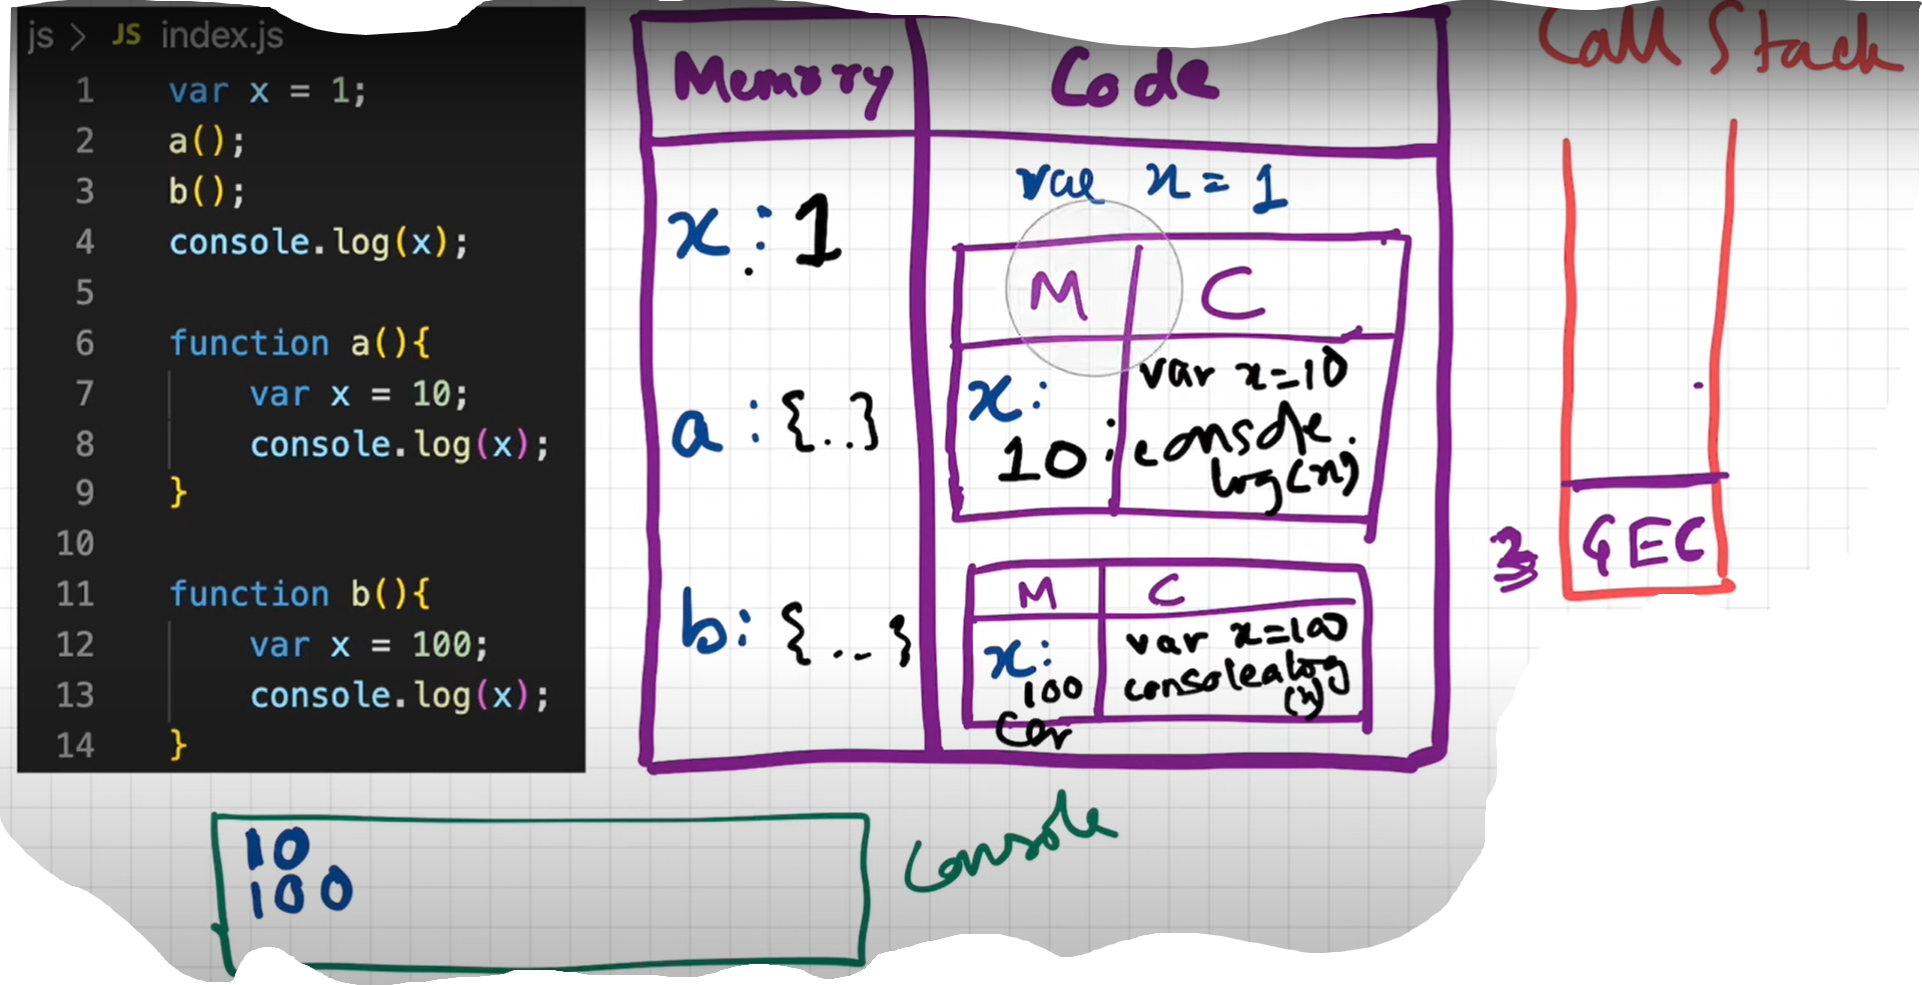 js > JS index.js
1 var x = 1;
2 a();
3 b();
4 console.log(x);
5
6 function a(){
7 var x = 10;
8 console.log(x);
9 }
10
11 function b(){
12 var x = 100;
13 console.log(x);
14 }
Memory
Code
x : 1
a : {..}
b : {...}
var x = 1
M C
x:
10
var x=10
console.
log(x)
M C
x:
100
var x=100
console.log
(x)
Call Stack
GEC
10
100
Console